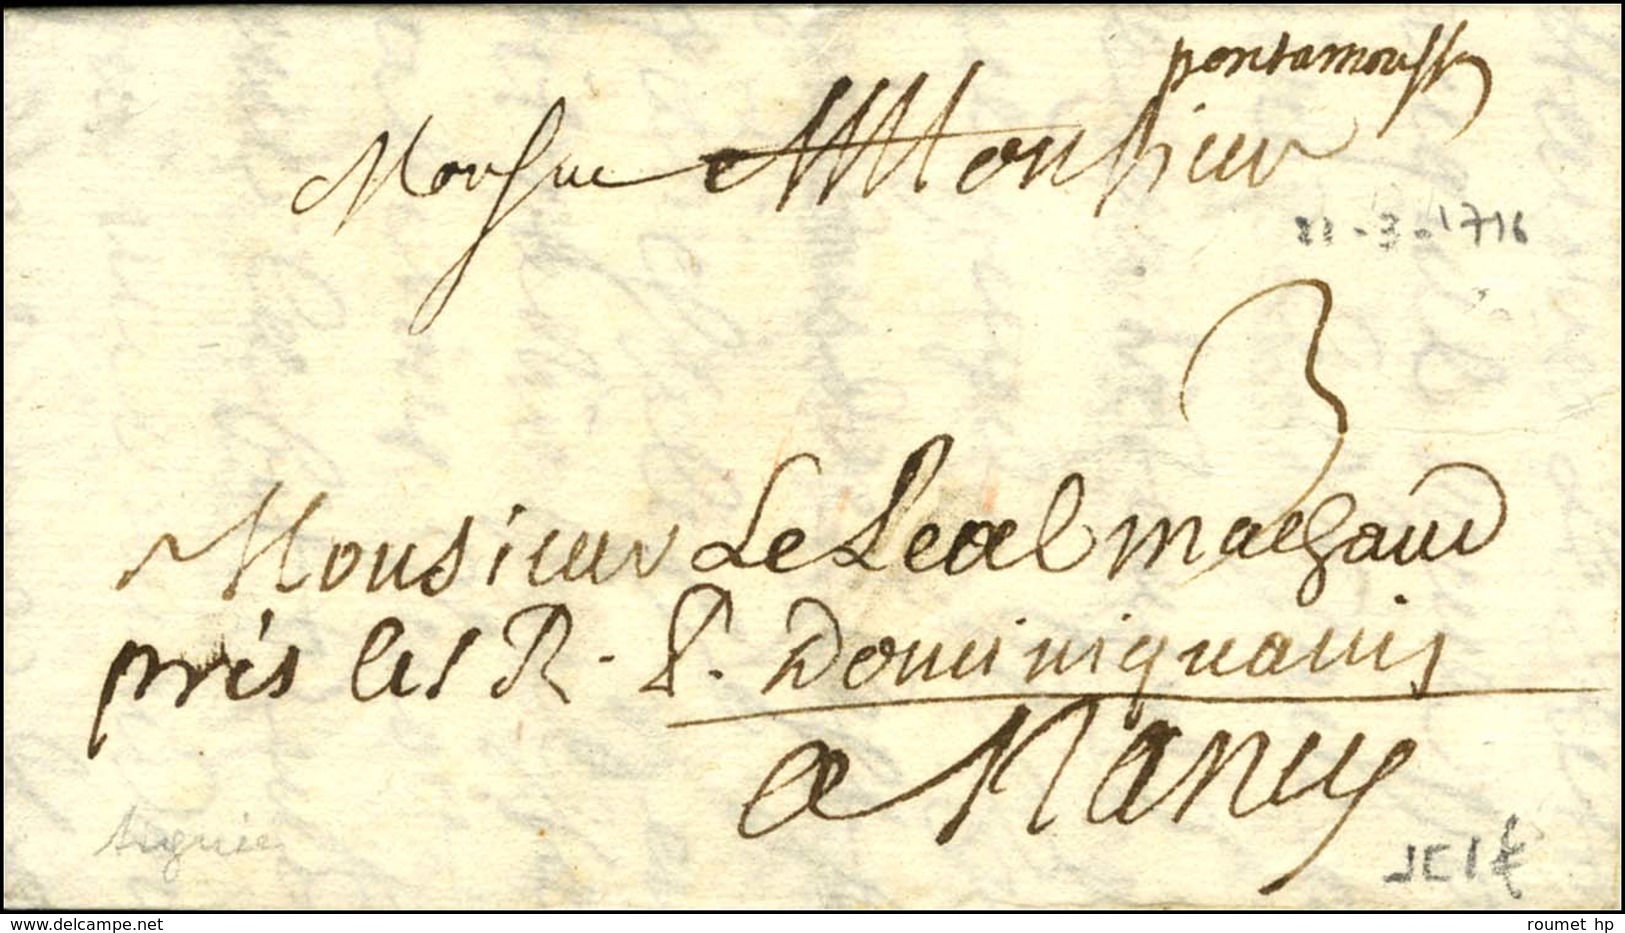 pontamousson
Monsieur Monsieur
21-3-1716
3
Monsieur Le Leal marchand
près les R. P. Dominiquains
a Nancy
Signée
roumet hp
delcampe.net